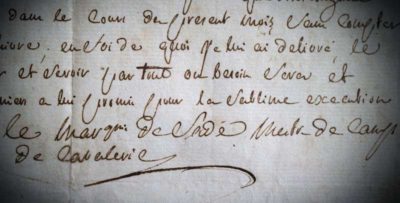 dans le cours du present mois sans compter
en foi de quoi je lui ai delivré le
et servir par tout ou besoin sera et
a lui promis pour la sublime execution
le marquis de Sade mestre de camp
de cavalerie